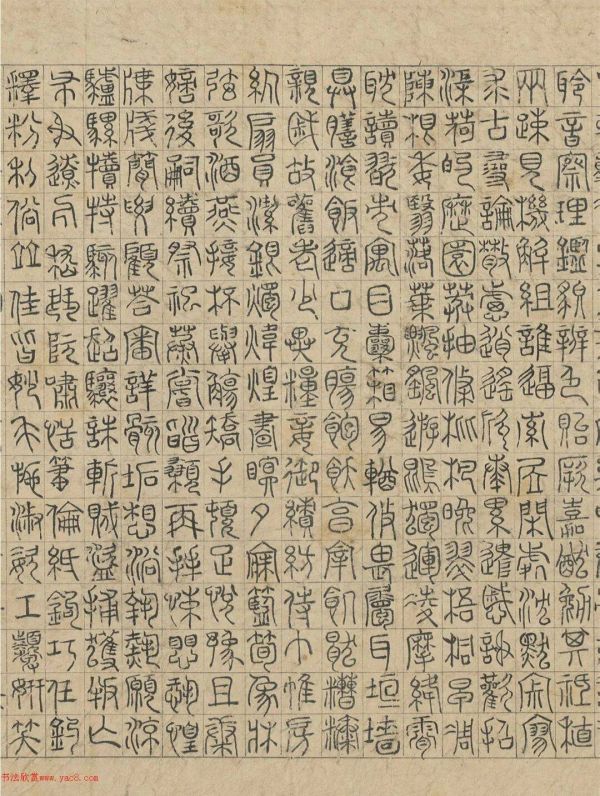 聆音察理鑑貌辨色貽厥嘉猷勉其祗植
兩疏見機解組誰逼索居閑處沈默寂寥
求古尋論散慮逍遙欣奏累遣慼謝歡招
渠荷的歷園莽抽條枇杷晚翠梧桐早凋
陳根委翳落葉飄颻遊鵾獨運凌摩絳霄
耽讀翫市寓目囊箱易輶攸畏屬耳垣墻
具膳飡飯適口充腸飽飫亯宰飢厭糟糠
親戚故舊老少異糧妾御績紡侍巾帷房
紈扇員潔銀燭煒煌晝瞑夕寐籃筍象牀
弦歌酒燕接杯舉觴矯手頓足悅豫且康
嫡後嗣續祭祀蒸嘗稽顙再拜悚懼恐惶
牒牋簡要顧答審詳骸垢想浴執熱願涼
驢騾犢特駭躍超驤誅斬賊盜捕獲叛亡
布射遼丸嵇琴阮嘯恬筆倫紙鈞巧任釣
釋粉利俗竝佳皆妙毛施淑姿工顰妍笑
书法欣赏www.yac8.com